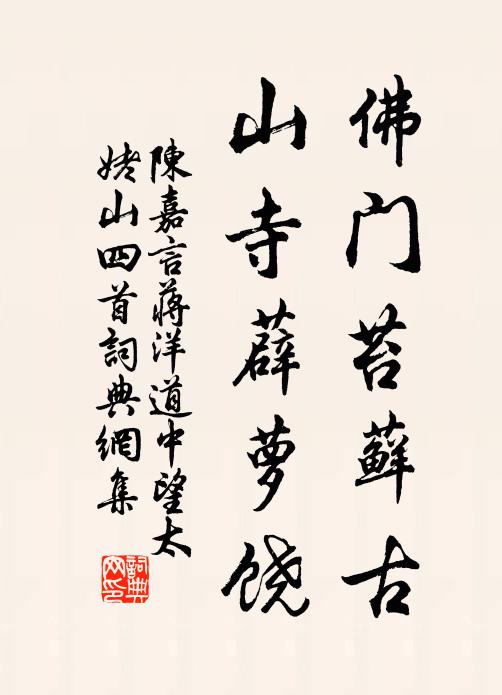 佛门苔藓古
山寺薜萝饶
陳嘉言蔣洋道中望太
姥山四首詞典網集
詞典网印